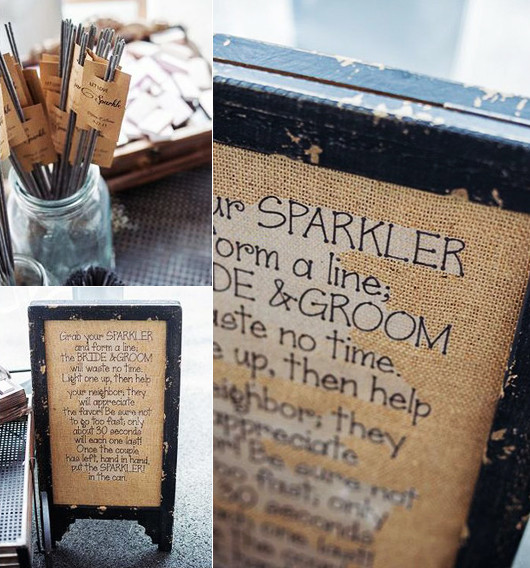 LET LOVE
Sparkle
Grab your SPARKLER
and form a line;
the BRIDE & GROOM
will waste no time.
Light one up, then help
your neighbor; they
will appreciate
the favor! Be sure not
to go too fast; only
about 30 seconds
will each one last!
Once the couple
has left, hand in hand,
put the SPARKLER!
in the can.
ur SPARKLER
orm a line;
DE & GROOM
aste no time.
e up, then help
neighbor; they
appreciate
Be sure not
fast; only
30 seconds